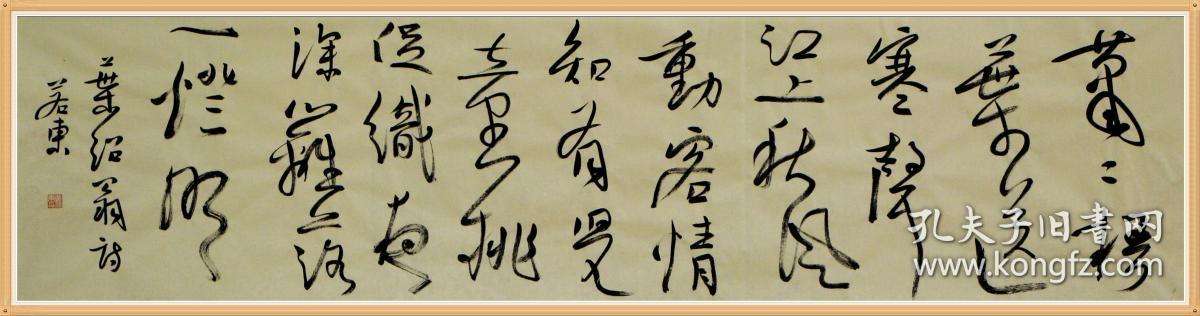 蕭〻梧
葉送
寒聲
江上秋風
動客情
知有兒
童挑
促織夜
深籬落
一燈明
葉紹翁詩
若東
孔夫子旧書网
www.kongfz.com